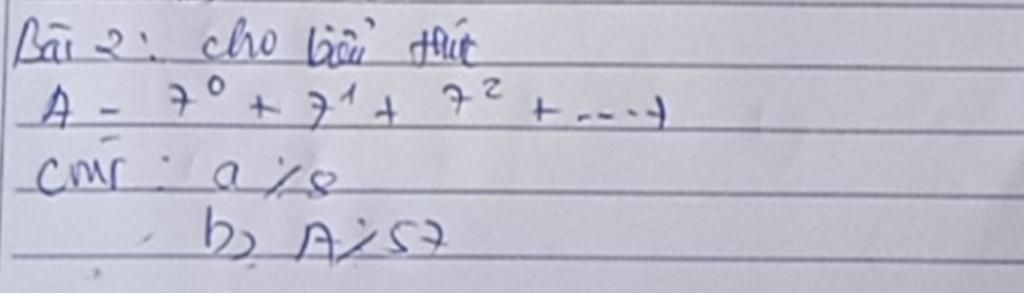 Bài 2: cho biểu thức
A = 7⁰ + 7¹ + 7² + ....+
CMR: a ⋮ 8
b) A ⋮ 57